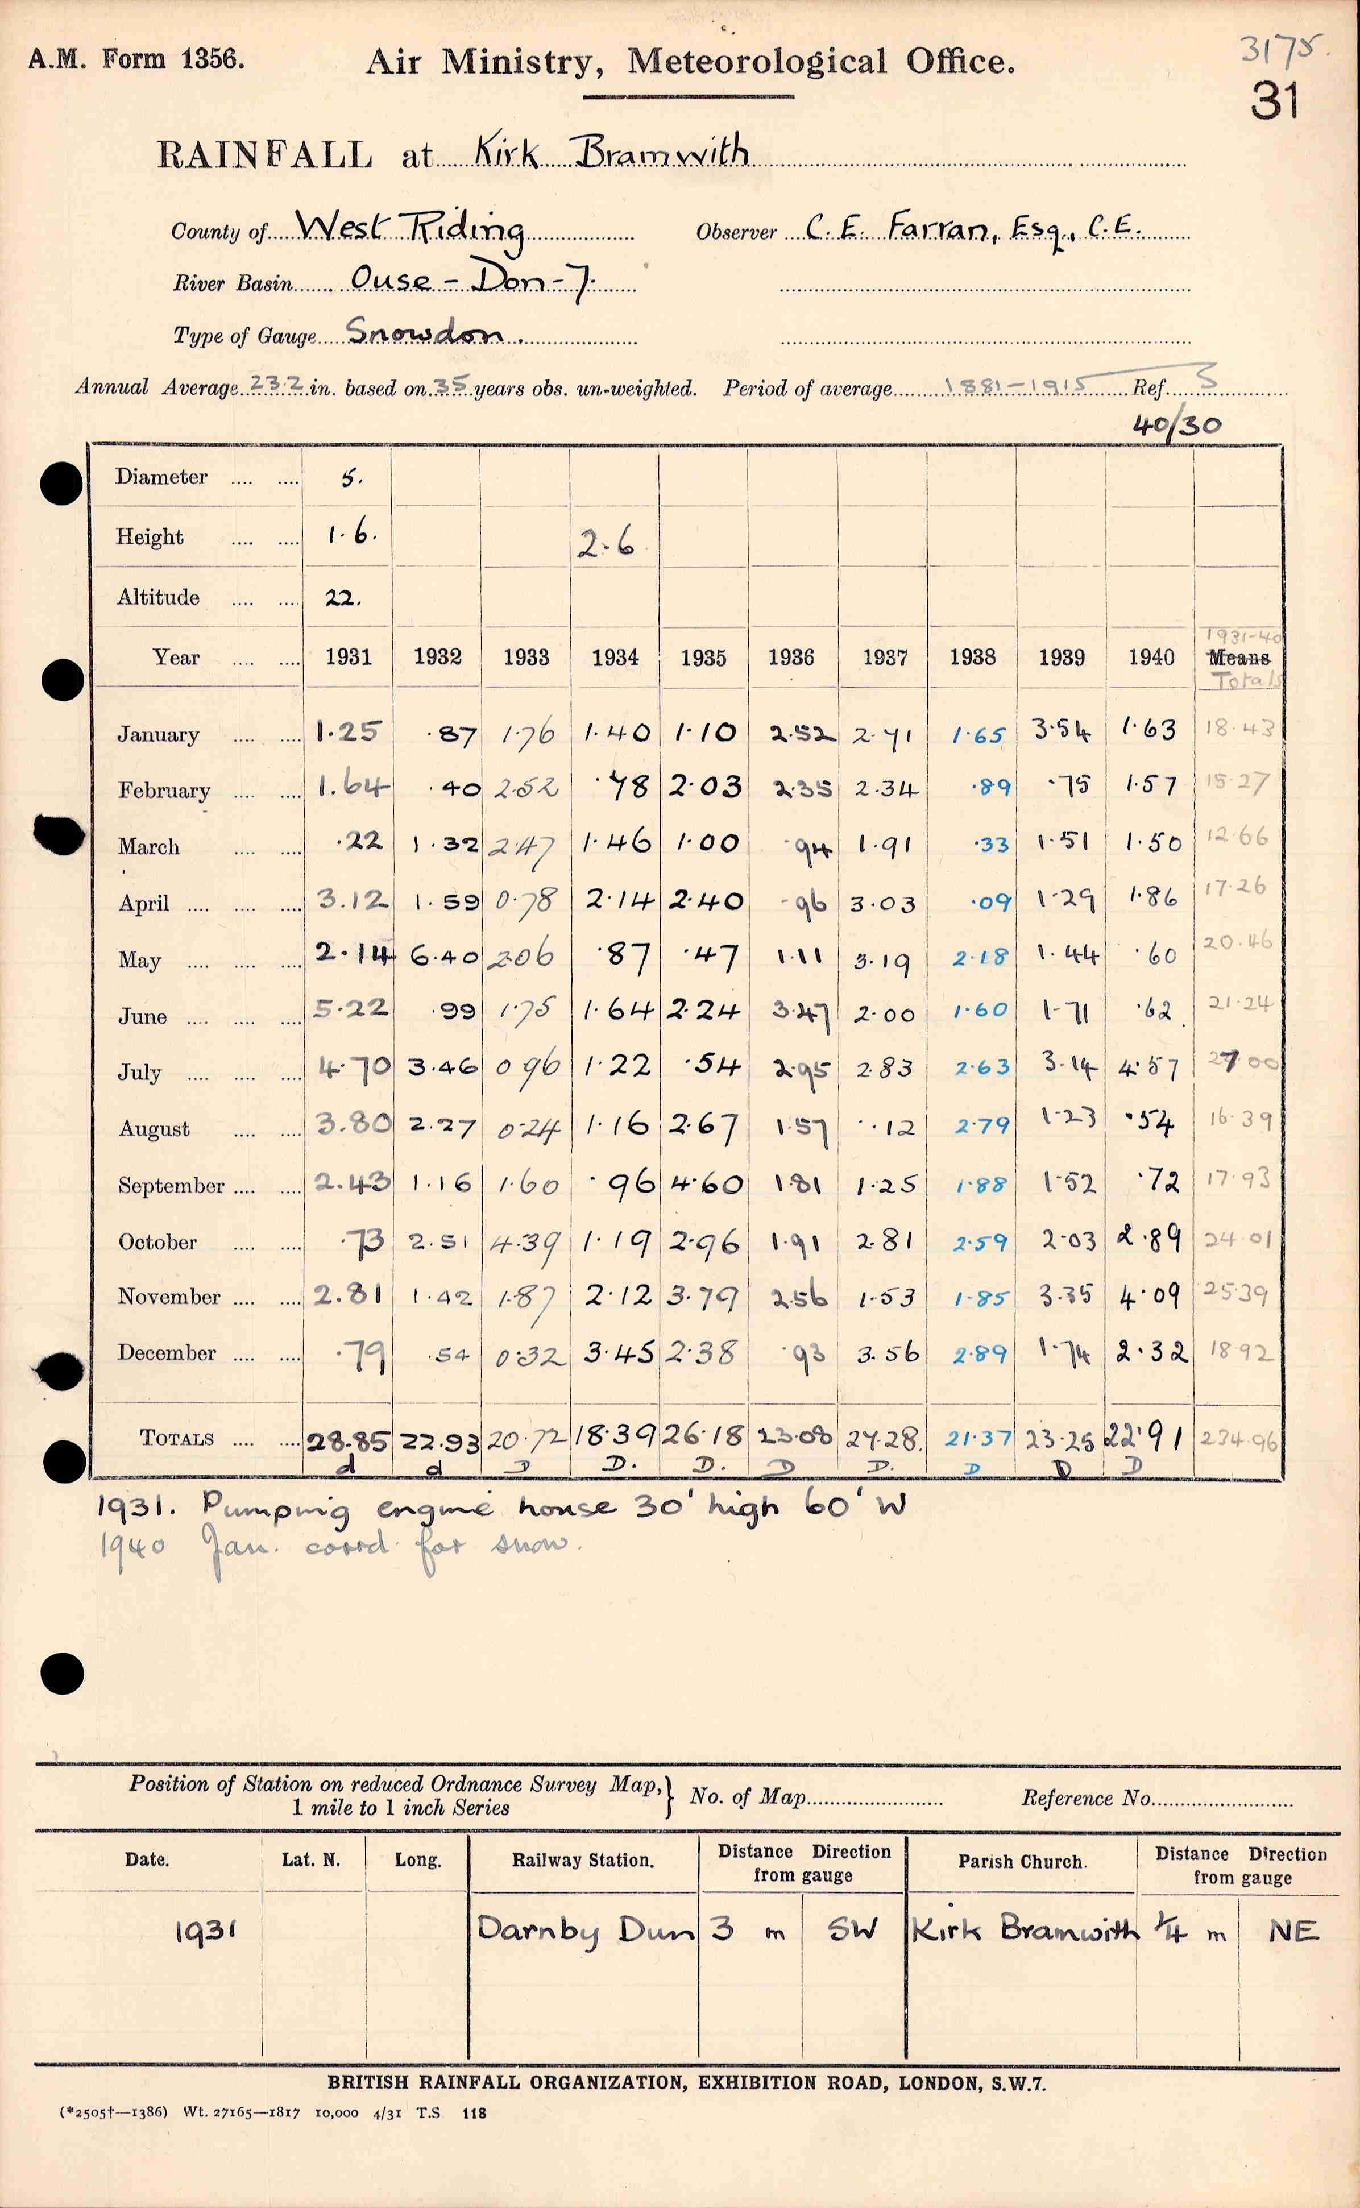 A.M. Form 1356.
Air Ministry, Meteorological Office.
3175.
31
RAINFALL at Kirk Bramwith
County of West Riding Observer C. E. Farran, Esq., C.E.
River Basin Ouse - Don - 7.
Type of Gauge Snowdon.
Annual Average 23.2 in. based on 35 years obs. un-weighted. Period of average 1881-1915 Ref. S
40/30
Diameter 5.
Height 1.6. 2.6
Altitude 22.
1931-40
Year 1931 1932 1933 1934 1935 1936 1937 1938 1939 1940 Means
Totals
January 1.25 .87 1.76 1.40 1.10 2.52 2.71 1.65 3.54 1.63 18.43
February 1.64 .40 2.52 .78 2.03 2.35 2.34 .89 .75 1.57 15.27
March .22 1.32 2.47 1.46 1.00 .94 1.91 .33 1.51 1.50 12.66
April 3.12 1.59 0.78 2.14 2.40 .96 3.03 .09 1.29 1.86 17.26
May 2.14 6.40 2.06 .87 .47 1.11 3.19 2.18 1.44 .60 20.46
June 5.22 .99 1.75 1.64 2.24 3.47 2.00 1.60 1.71 .62 21.24
July 4.70 3.46 0.96 1.22 .54 2.95 2.83 2.63 3.14 4.57 27.00
August 3.80 2.27 0.24 1.16 2.67 1.57 .12 2.79 1.23 .54 16.39
September 2.43 1.16 1.60 .96 4.60 1.81 1.25 1.88 1.52 .72 17.93
October .73 2.51 4.39 1.19 2.96 1.91 2.81 2.59 2.03 2.89 24.01
November 2.81 1.42 1.87 2.12 3.79 2.56 1.53 1.85 3.35 4.09 25.39
December .79 .54 0.32 3.45 2.38 .93 3.56 2.89 1.74 2.32 18.92
TOTALS 28.85 22.93 20.72 18.39 26.18 23.08 27.28. 21.37 23.25 22.91 234.96
d d D D. D. D D. D D D
1931. Pumping engine house 30' high 60' W
1940 Jan. corrd. for snow.
Position of Station on reduced Ordnance Survey Map, } No. of Map Reference No.
1 mile to 1 inch Series
Date. Lat. N. Long. Railway Station. Distance Direction from gauge Parish Church. Distance Direction from gauge
1931 Darnby Dun 3 m SW Kirk Bramwith 1/4 m NE
BRITISH RAINFALL ORGANIZATION, EXHIBITION ROAD, LONDON, S.W.7.
(*2505†—1386) Wt. 27165—1817 10,000 4/31 T.S. 118